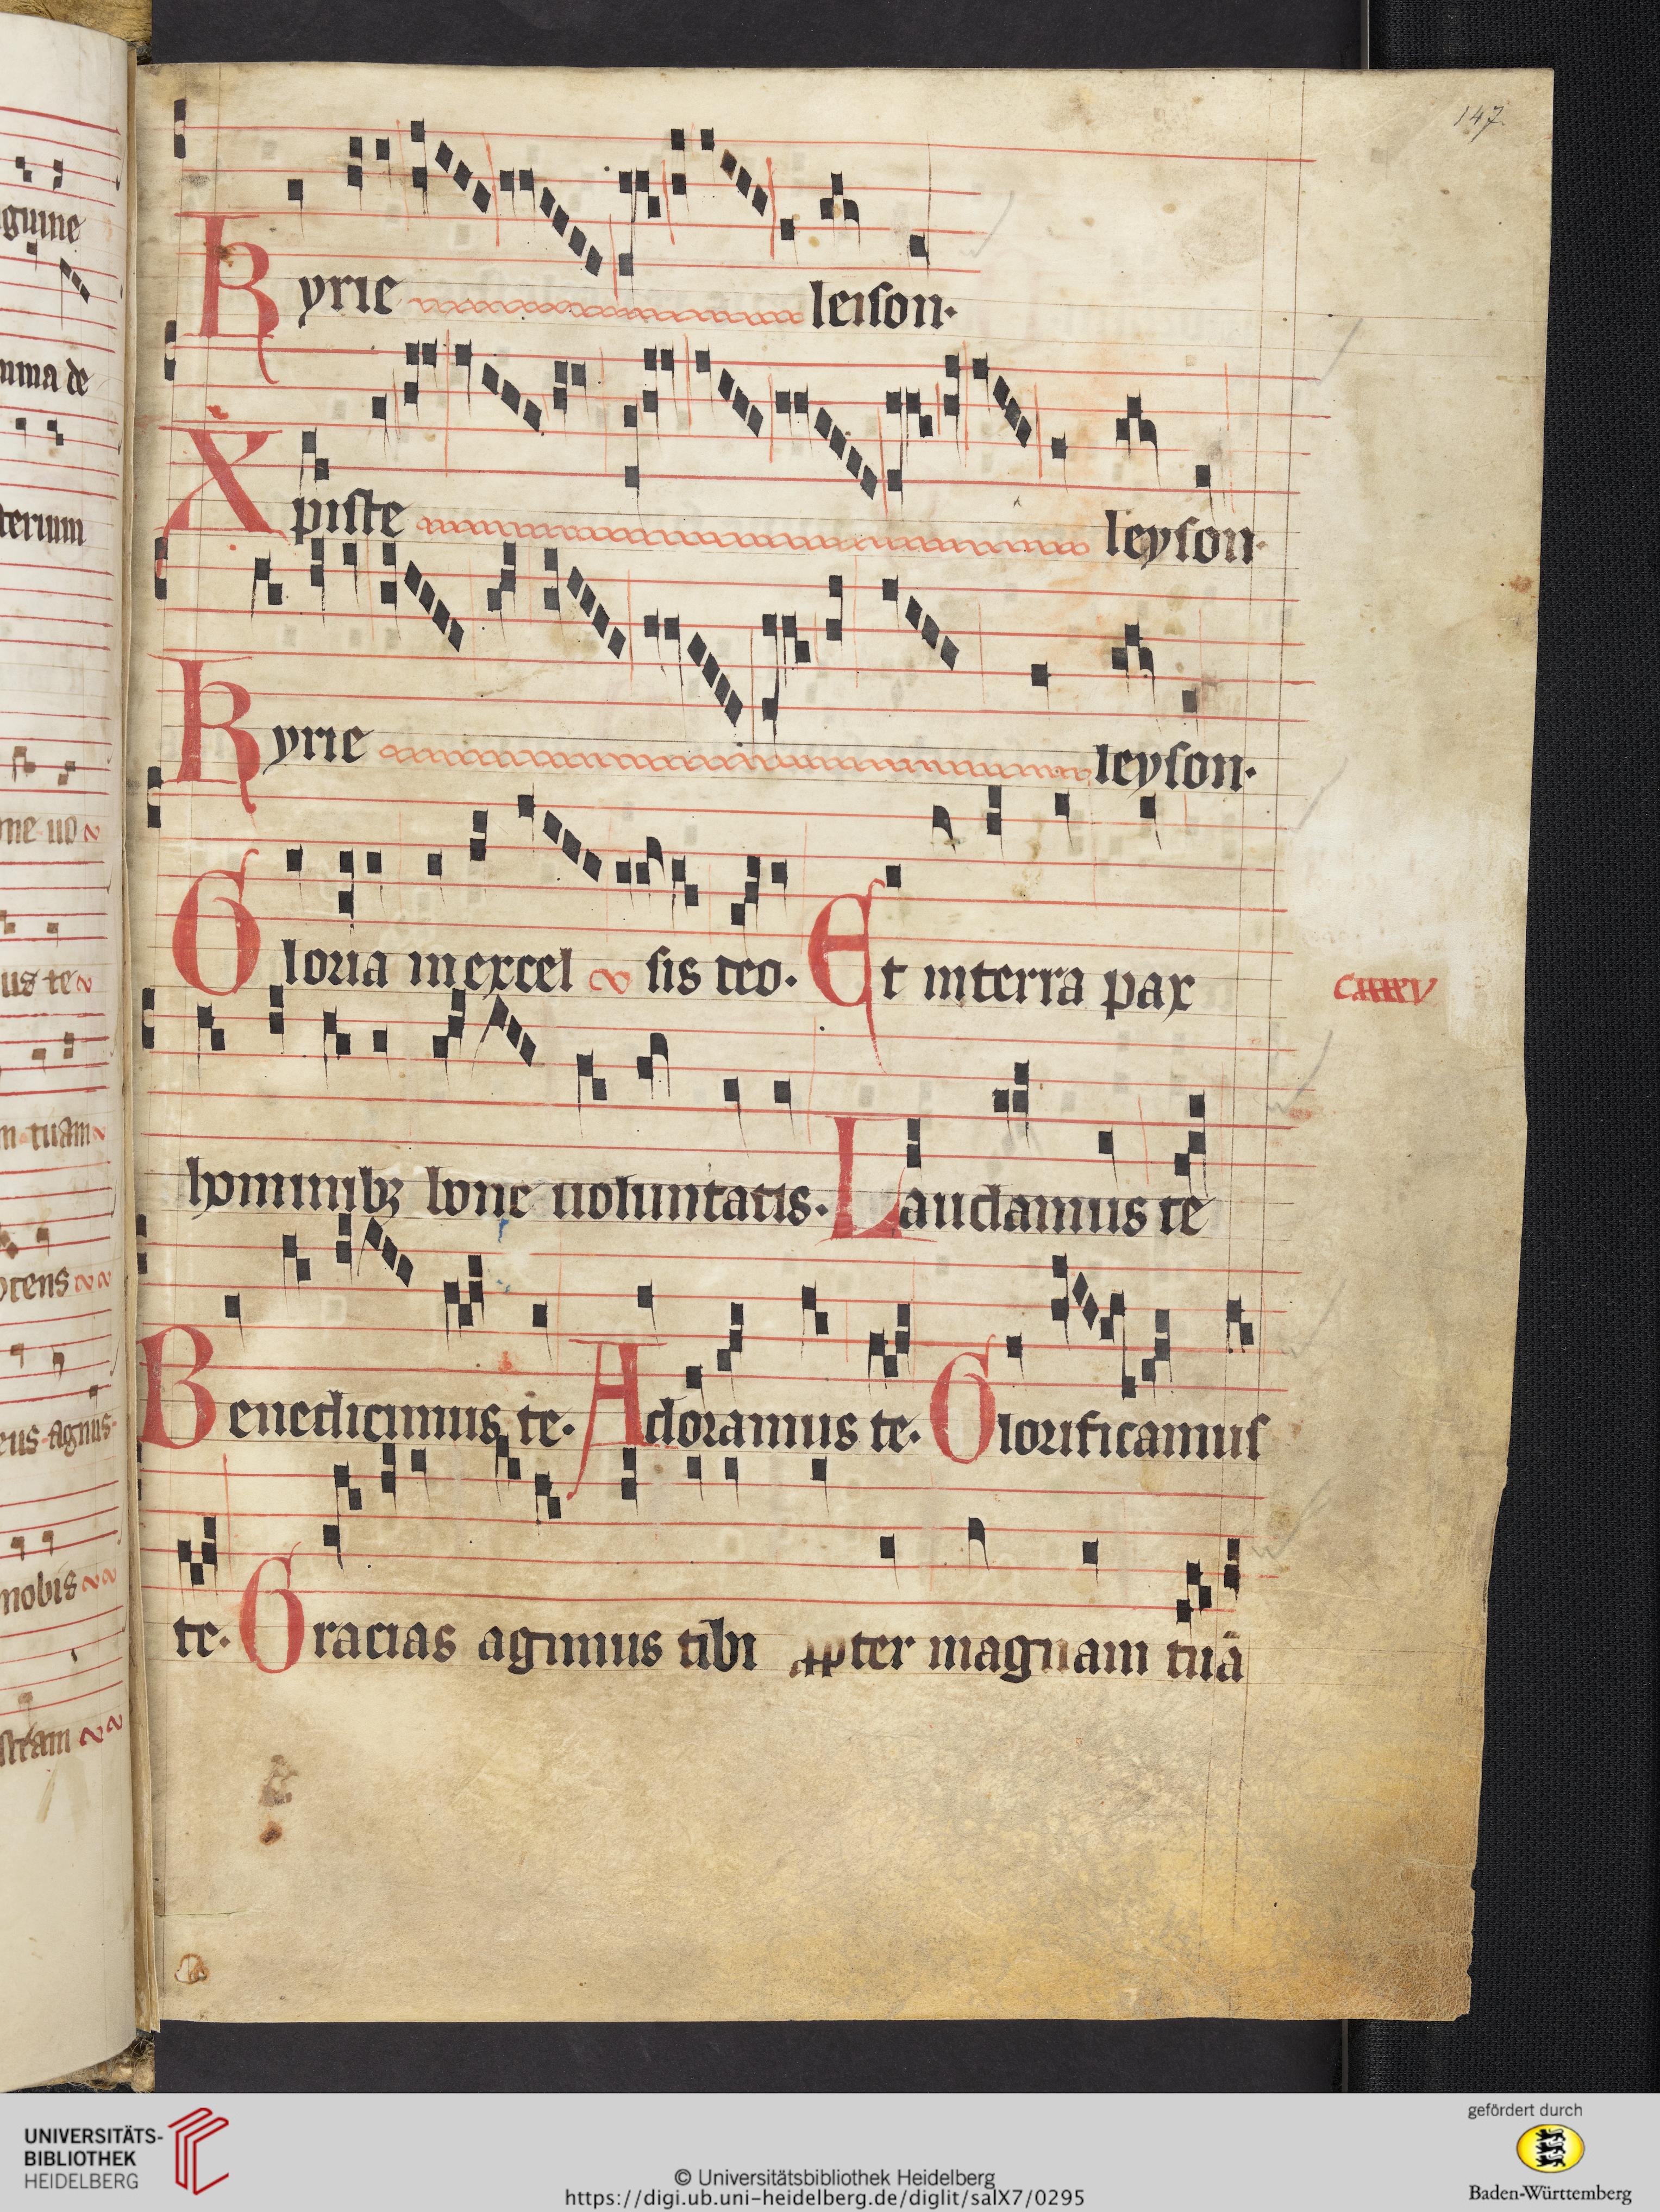 147.
guine
mma de
terium
me uo
us te
m tuam
otens
eus agnus
nobis
stram
Kyrie leison.
Xpiste leyson.
Kyrie leyson.
Gloria in excel sis deo. Et in terra pax
hominibꝫ bone uoluntatis. Laudamus te
Benedicimus te. Adoramus te. Glorificamus
te. Gracias agimus tibi ꝓpter magnam tuā
UNIVERSITÄTS-
BIBLIOTHEK
HEIDELBERG
© Universitätsbibliothek Heidelberg
https://digi.ub.uni-heidelberg.de/diglit/salX7/0295
gefördert durch
Baden-Württemberg